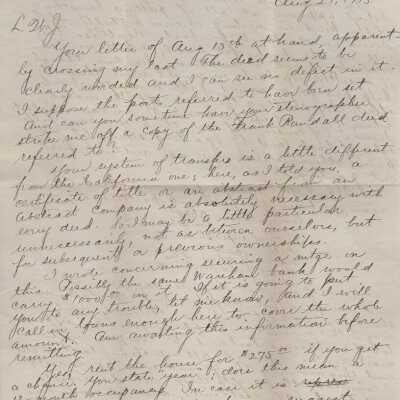 Aug 2
L W J
Your letter of Aug 13th at hand, apparent-
ly crossing my last. The deed seems to be
clearly worded and I can see no defect in it.
I suppose the posts referred to have been set
And can you sometime have your stenographer
strike me off a copy of the Frank Randall deed
referred to?
Your system of transfer is a little different
from the California one; here, as I told you, a
certificate of title or an abstract from an
Abstract company is absolutely necessary with
every deed. So I may be a little particular
unnecessarily, not as between ourselves, but
for subsequent & previous ownerships.
I wrote concerning securing a mtge. on
this. Possibly the same Wareham bank would
carry $1000 on it. If it is going to put
you to any trouble, let me know, and I will
call in loans enough here to cover the whole
amount. Am awaiting this information before
remitting.
Yes, rent the house for $275 if you get
a chance. You state year; does this mean a
month occupancy. In case it is
suggest